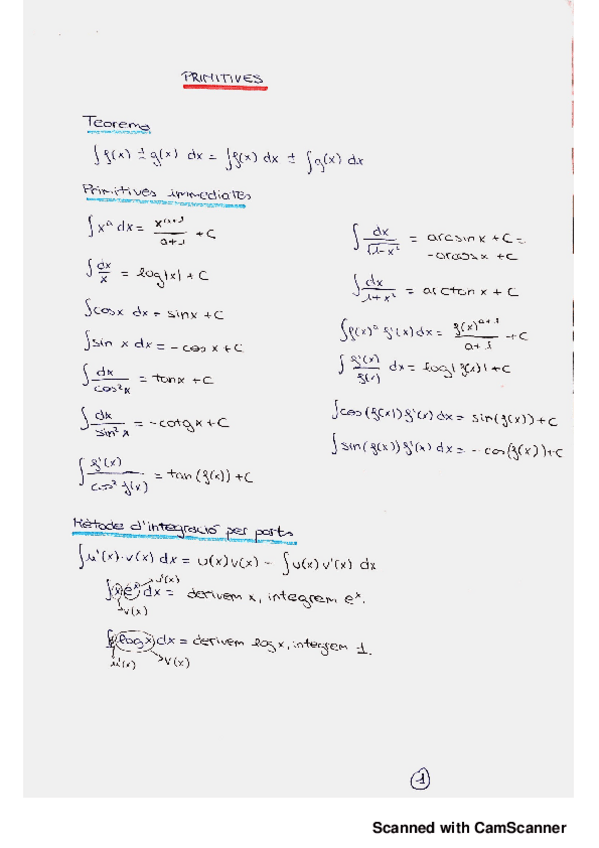 PRIMITIVES
Teorema
∫f(x) ± g(x) dx = ∫f(x) dx ± ∫g(x) dx
Primitives immediates
∫xᵃ dx = x^(a+1)/(a+1) + C
∫dx/x = log|x| + C
∫cosx dx = sinx + C
∫sin x dx = -cos x + C
∫dx/cos²x = tanx + C
∫dx/sin²x = -cotgx + C
∫f'(x)/cos² f(x) = tan(f(x)) + C
∫dx/√(1-x²) = arcsinx + C =
-arcosx + C
∫dx/(1+x²) = arctanx + C
∫f(x)ᵃ f'(x) dx = f(x)^(a+1)/(a+1) + C
∫f'(x)/f(x) dx = log|f(x)| + C
∫cos(f(x)) f'(x) dx = sin(f(x)) + C
∫sin(f(x)) f'(x) dx = -cos(f(x)) + C
Mètode d'integració per parts
∫u'(x)·v(x) dx = u(x)v(x) - ∫u(x)v'(x) dx
u'(x)
∫x eˣ dx = derivem x, integrem eˣ.
v(x)
∫1 logx dx = derivem logx, integrem 1.
u'(x) v(x)
1
Scanned with CamScanner